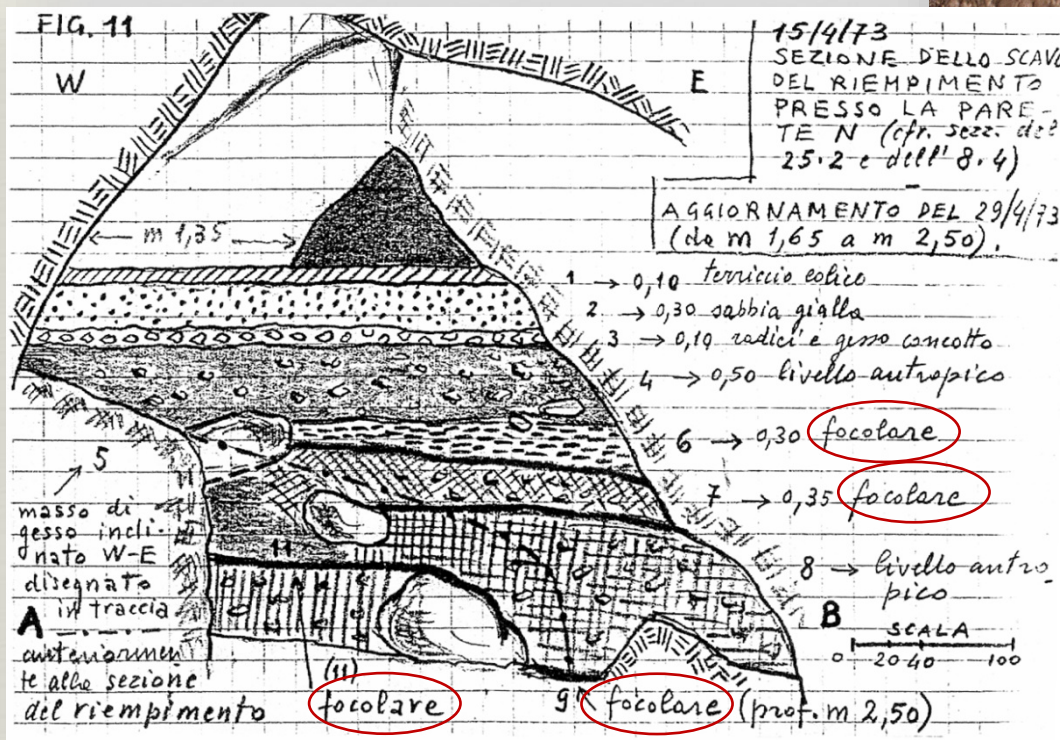 FIG. 11
W
E
15/4/73
SEZIONE DELLO SCAVO
DEL RIEMPIMENTO
PRESSO LA PARE-
TE N (cfr. sezz. del
25.2 e dell' 8.4)
AGGIORNAMENTO DEL 29/4/73
(da m 1,65 a m 2,50).
m 1,35
1 → 0,10 terriccio eolico
2 → 0,30 sabbia gialla
3 → 0,10 radici e gesso concotto
4 → 0,50 livello antropico
6 → 0,30 focolare
7 → 0,35 focolare
8 → livello antro-
pico
5
masso di
gesso incli-
nato W-E
disegnato
in traccia
anteriormen
te alla sezione
del riempimento
A
B
11
SCALA
0 20 40 100
(11)
focolare
9 focolare (prof. m 2,50)